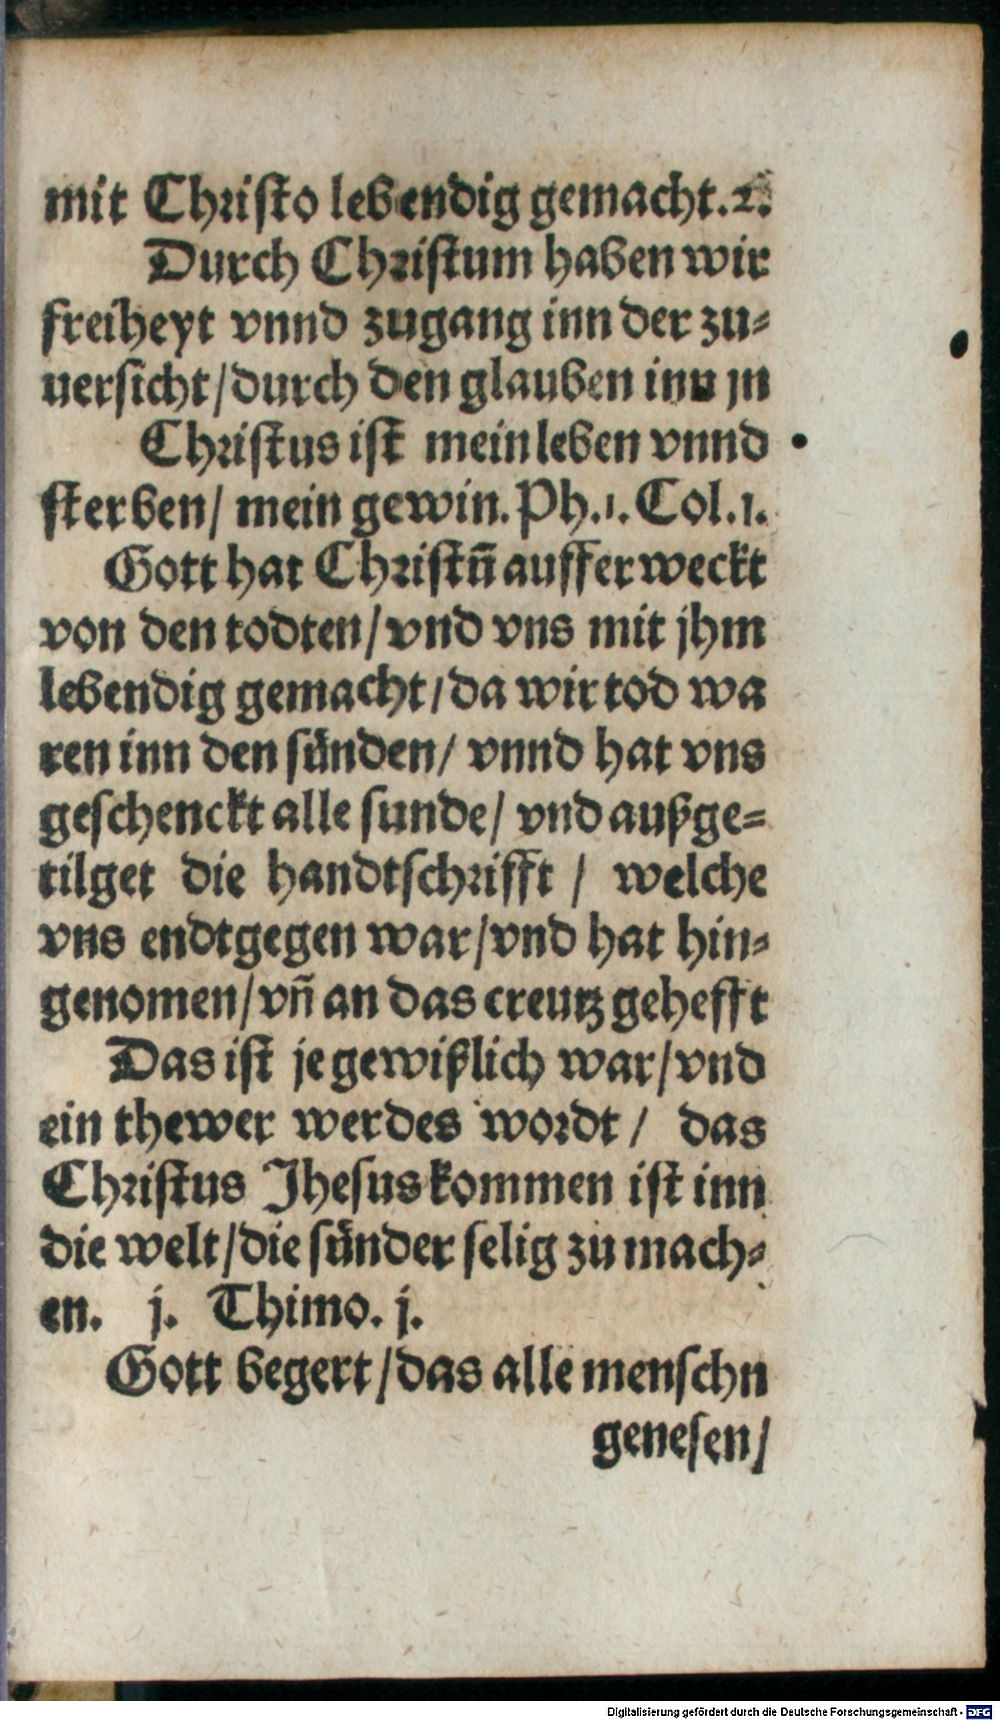 mit Christo lebendig gemacht. 2.
Durch Christum haben wir
freiheyt vnnd zugang inn der zu-
uersicht/durch den glauben inn jn
Christus ist mein leben vnnd
sterben/ mein gewin. Ph.1. Col.1.
Gott hat Christū aufferweckt
von den todten/vnd vns mit jhm
lebendig gemacht/da wir tod wa
ren inn den sünden/ vnnd hat vns
geschenckt alle sunde/ vnd außge-
tilget die handtschrifft / welche
vns endtgegen war/vnd hat hin-
genomen/vñ an das creutz gehefft
Das ist je gewißlich war/vnd
ein thewer werdes wordt/ das
Christus Jhesus kommen ist inn
die welt/die sünder selig zu mach-
en. j. Thimo. j.
Gott begert/das alle menschn
genesen/
Digitalisierung gefördert durch die Deutsche Forschungsgemeinschaft - DFG